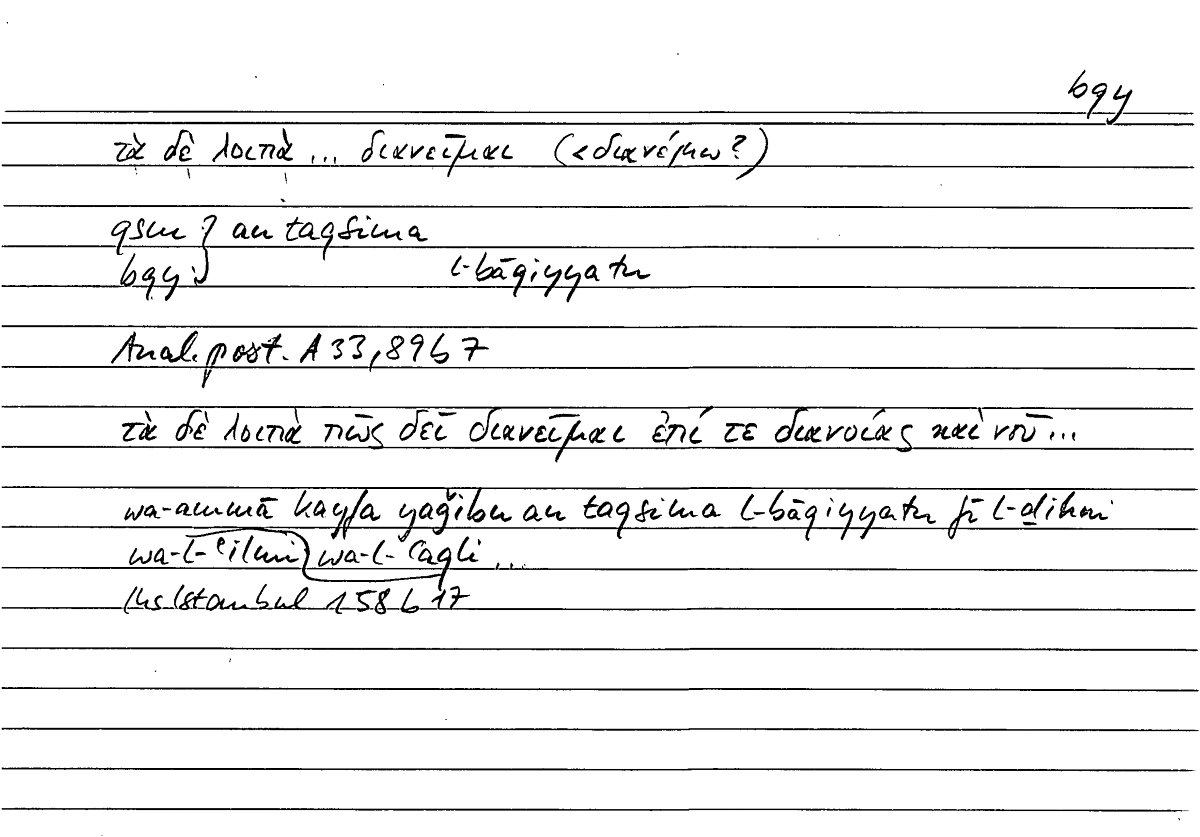 bqy
τὰ δὲ λοιπὰ ... διανεῖμαι (<διανέμω?)
qsm } an taqsima
bqy: l-bāqiyyatu
Anal. post. A 33, 89b 7
τὰ δὲ λοιπὰ πῶς δεῖ διανεῖμαι ἐπί τε διανοίας καὶ νοῦ ...
wa-ammā kayfa yaǧibu an taqsima l-bāqiyyatu fī l-ḏihni
wa-l-ʿilmi wa-l-ʿaqli ...
Hs Istanbul 158b 17